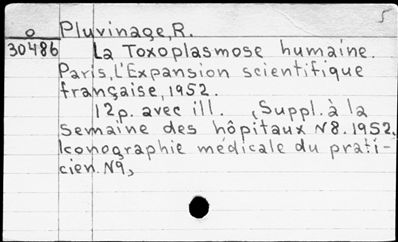 5
o Pluvinage, R.
30486 La Toxoplasmose humaine.
Paris, L'Expansion scientifique
française, 1952.
12p. avec ill. (Suppl. à la
Semaine des hôpitaux N8. 1952.
Iconographie médicale du prati-
cien. N9)